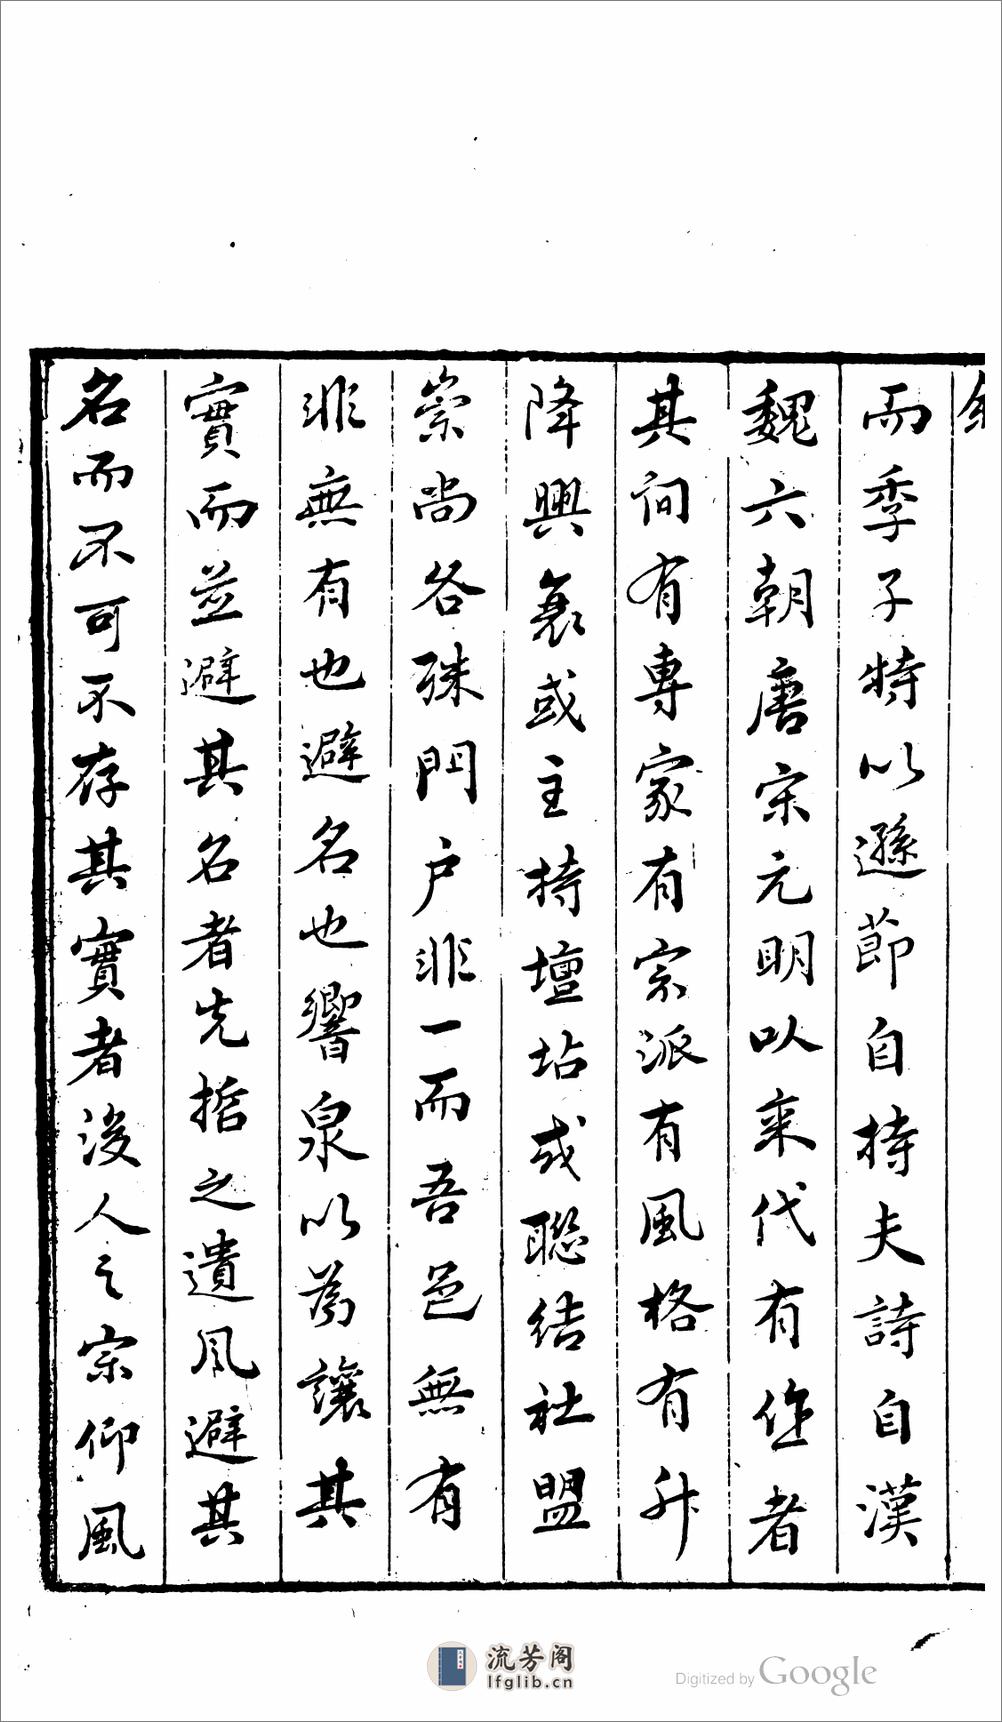 而季子特以遜節自持夫詩自漢
魏六朝唐宋元明以来代有作者
其间有專家有宗派有風格有升
降興衰或主持壇坫或聯結社盟
崇尚各殊門户非一而吾邑無有
非無有也避名也響泉以為讓其
實而並避其名者先哲之遺風避其
名而不可不存其實者後人之宗仰風
流芳阁
lfglib.cn
Digitized by Google